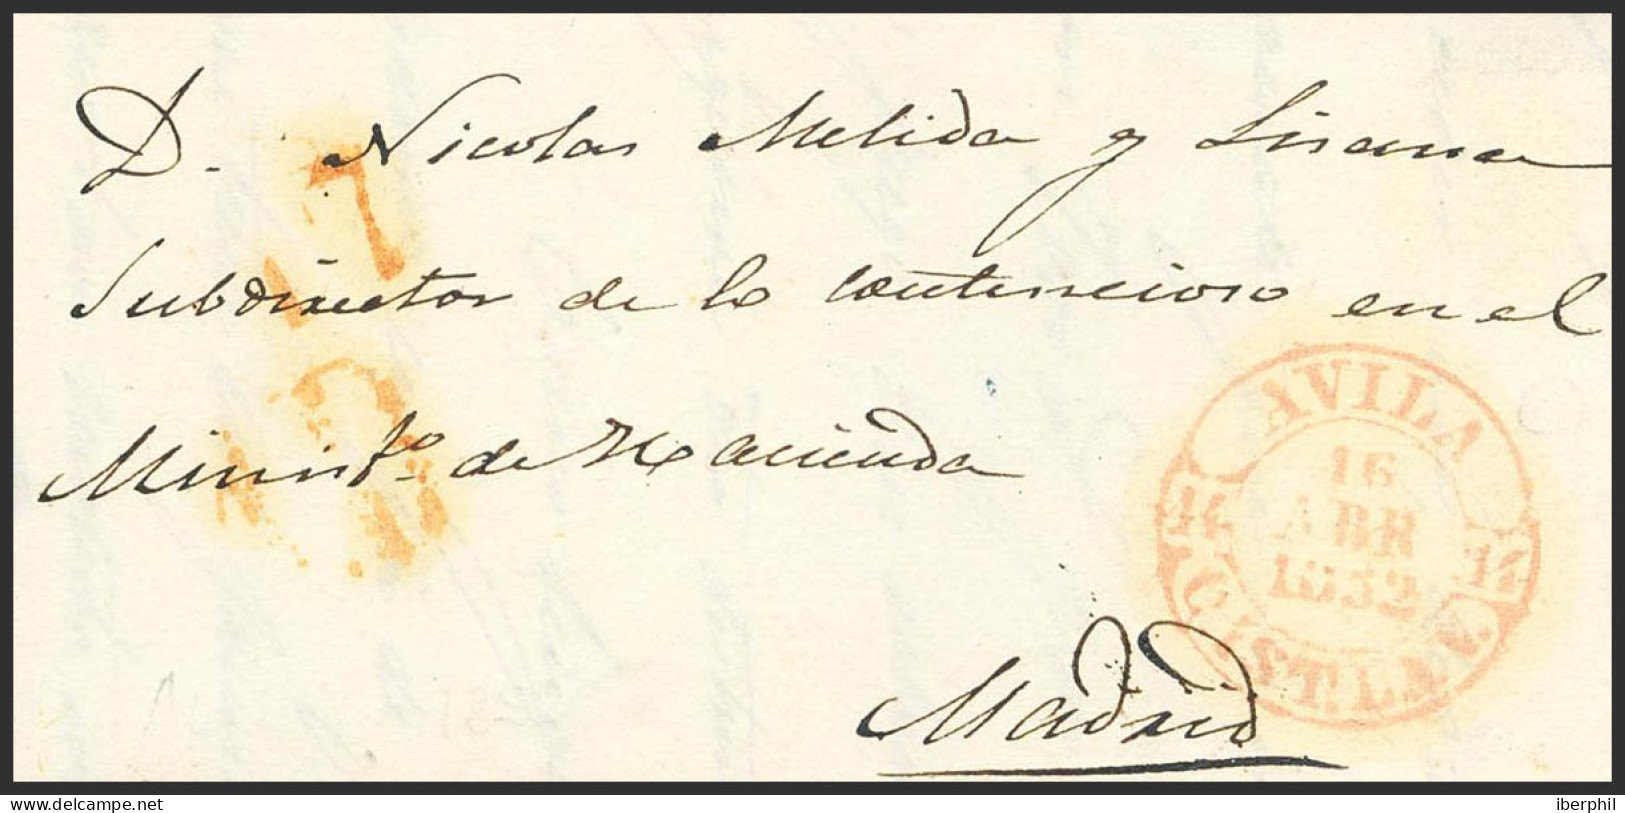 D. Nicolas Melida y Lisana
Subdirector de lo contencioso en el
Minist.º de Hacienda
Madrid
AVILA
16
ABR
1852
CAST. LA V.
17
www.delcampe.net
iberphil